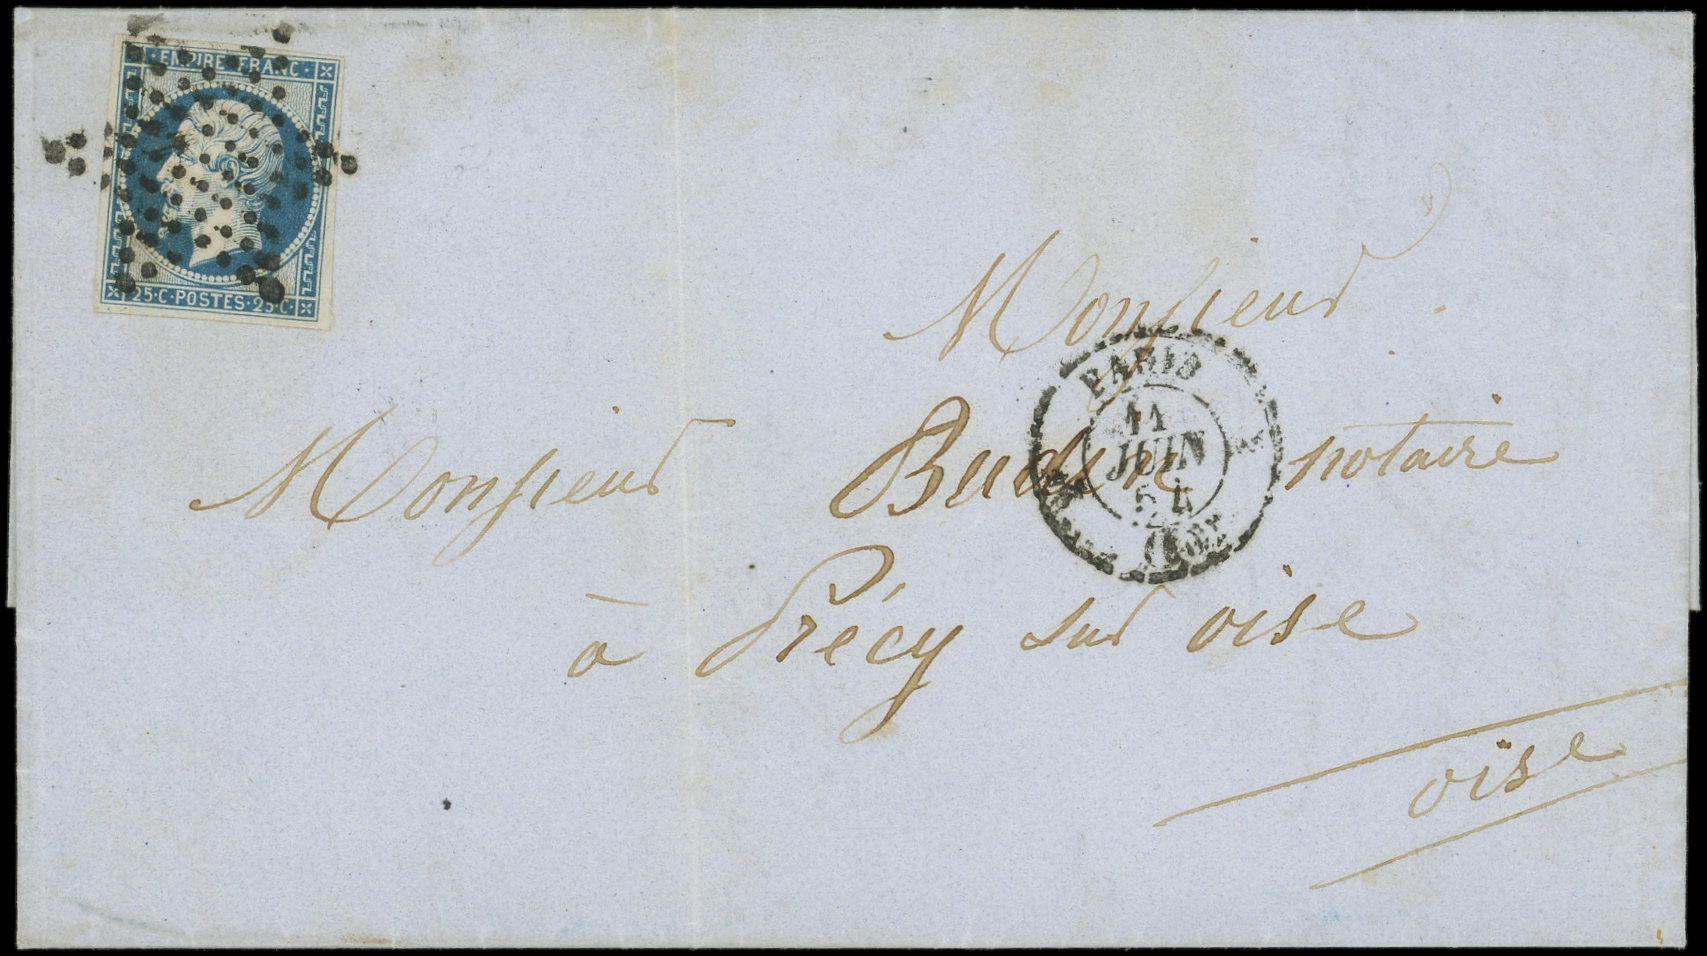 EMPIRE FRANC
25·C·POSTES·25·C·
Monsieur
Monsieur Budin notaire
à Précy sur oise
oise
PARIS
11
JUIN
54
(60)